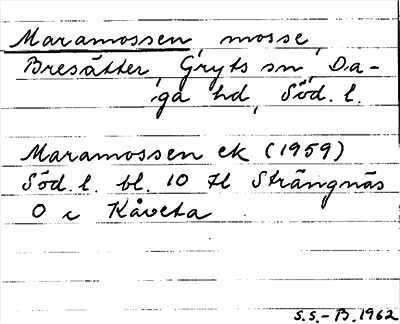 Maramossen, mosse,
Bresätter, Gryts sn, Da-
ga hd, Söd. l.
Maramossen ek (1959)
Söd. l. bl. 10 tl Strängnäs
O c Kåveta
S.S.-B. 1962